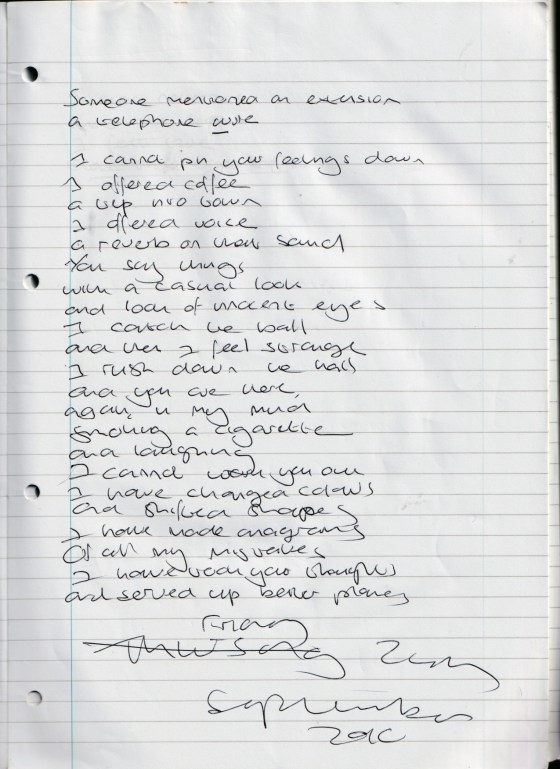 Someone mentioned an extension
a telephone wire
I cannot pin your feelings down
I offered coffee
a trip into town
I offered voice
a reverb on your sound
You say things
with a casual look
and look of innocent eyes
I catch the ball
and then I feel strange
I rush down the hall
and you are here,
again, in my mind
smoking a cigarette
and laughing
I cannot work you out
I have changed colours
and shifted shapes
I have made anagrams
Of all my mistakes
I have your thoughts
and served up better
Friday
September